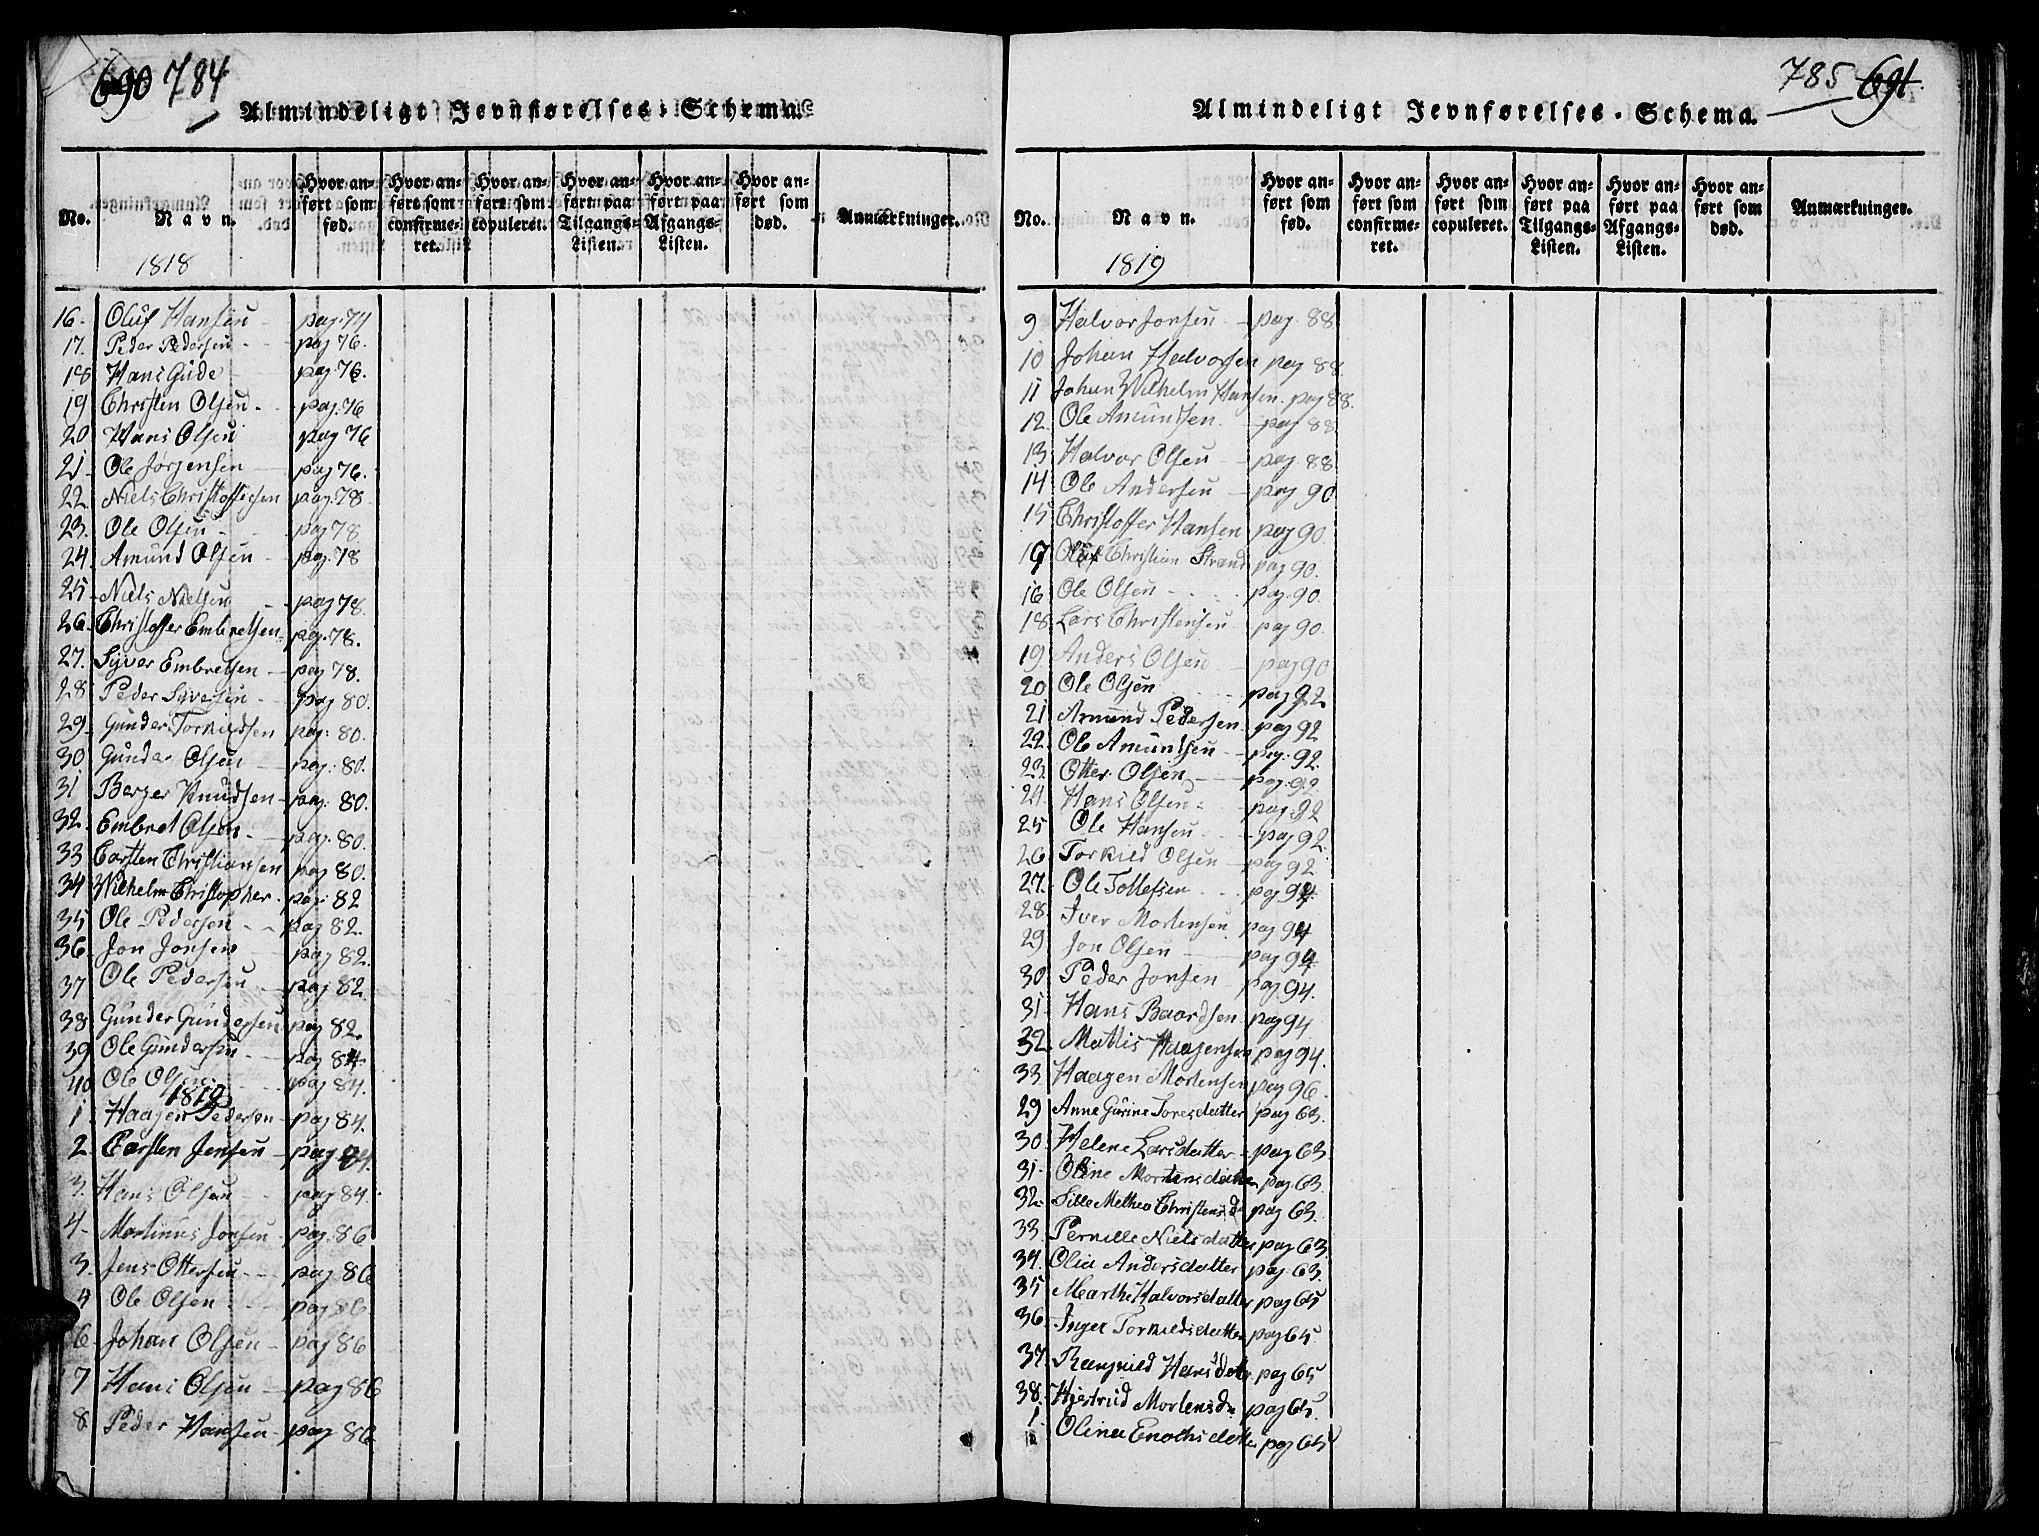 690 784
Almindeligt Jevnførelses-Schema.
No. Navn. Hvor anført som fød. Hvor anført som confirmeret. Hvor anført som copuleret. Hvor anført paa Tilgangs-Listen. Hvor anført paa Afgangs-Listen. Hvor anført som død. Anmærkninger.
1818
16. Oluf Hansen pag. 74
17. Peder Pedersen pag 76.
18 Hans Gude pag. 76.
19 Christen Olsen pag. 76
20 Hans Olsen pag 76
21 Ole Jørgensen pag 76.
22 Niels Christoffersen pag. 78
23. Ole Olsen pag 78
24. Amund Olsen pag. 78
25 Niels Nielsen pag 78.
26. Christoffer Embretsen pag. 78.
27. Syver Embretsen pag 78.
28 Peder Syversen pag 80.
29. Gunder Torkildsen pag: 80.
30 Gunder Olsen pag: 80.
31 Berger Knudsen pag: 80.
32. Embret Olsen pag. 80.
33 Carsten Christiansen pag 80.
34 Wilhelm Christopher pag. 82
35 Ole Pedersen pag 82.
36. Jon Jonsen pag 82.
37 Ole Pedersen pag 82.
38 Gunder Gundersen pag 82.
39 Ole Gundersen pag 84
40 Ole Olsen pag 84.
1819
1 Haagen Pedersen pag 84.
2. Carsten Jensen pag 84.
3. Hans Olsen pag 84.
4 Martinus Jonsen pag. 86
3. Jens Ottersen pag 86
Ole Olsen pag 86
6 Johan Olsen pag 86
7 Hans Olsen pag 86
8. Peder Hansen pag 86
785 691.
Almindeligt Jevnførelses-Schema.
No. Navn. Hvor anført som fød. Hvor anført som confirmeret. Hvor anført som copuleret. Hvor anført paa Tilgangs-Listen. Hvor anført paa Afgangs-Listen. Hvor anført som død. Anmærkninger.
1819
9 Halvor Jonsen pag. 88
10 Johan Halvorsen pag 88
11 Johan Wilhelm Hansen. pag 88.
12. Ole Amundsen. pag 88
13. Halvor Olsen pag. 88
14 Ole Andersen pag 90
15 Christoffer Hansen pag 90.
17 Oluf Christian Strand pag 90.
16 Ole Olsen pag. 90
18. Lars Christensen pag 90.
19. Anders Olsen pag 90
20 Ole Olsen pag 92
21 Amund Pedersen pag 92
22. Ole Amundsen pag. 92.
23. Otter Olsen pag. 92
24. Hans Olsen pag. 92
25 Ole Hansen pag 92.
26 Torkild Olsen pag 92
27. Ole Tollefsen pag 94
28. Iver Mortensen pag 94
29 Jon Olsen pag 94
30 Peder Jonsen pag. 94.
31 Hans Baardsen pag 94
32. Mattis Haagensen pag 94.
33. Haagen Mortensen pag 96.
29 Anne Gurine Toresdatter pag 63.
30. Helene Larsdatter pag 63
31. Oline Mortensdatter pag. 63.
32. Sille Mathea Christensd pag 63.
33. Pernille Nielsdatter pag 63.
34. Olia Andersdatter pag. 63.
35 Marthe Halvorsdatter pag 65
36. Inger Torkildsdatter pag 65
37. Rangnild Hansdatr pag 65
38. Hjertrud Mortensd pag 65.
1 Olinea Enochsdatter pag 65